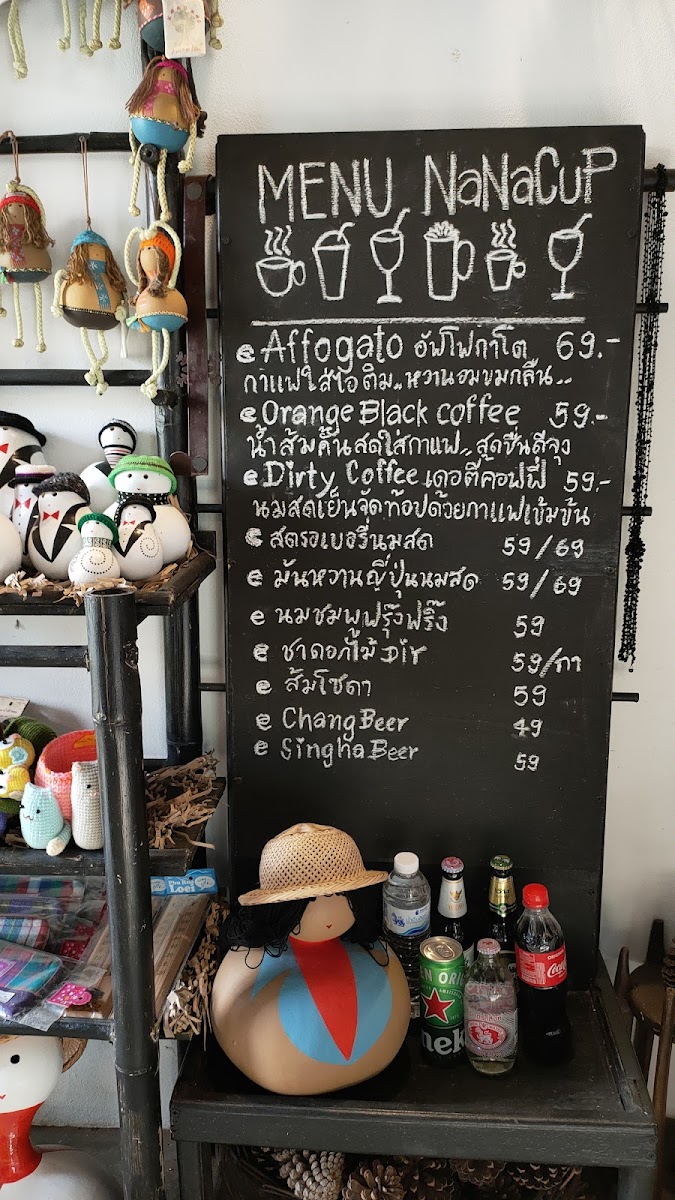 MENU NaNaCuP
Affogato อัฟโฟกาโต 69.-
กาแฟใส่ไอติม.. หวานอมขมกลืน..
Orange Black coffee 59.-
น้ำส้มคั้นสดใส่กาแฟ.. สุดชื่นดีจุง
Dirty Coffee เดอตี้คอฟฟี่ 59.-
นมสดเย็นจัดท้อปด้วยกาแฟเข้มข้น
สตรอเบอรี่นมสด 59/69
มันหวานญี่ปุ่นนมสด 59/69
นมชมพูฟรุ้งฟริ้ง 59
ชาดอกไม้ Dir 59/กา
ส้มโซดา 59
Chang Beer 49
Singha Beer 59
Loei